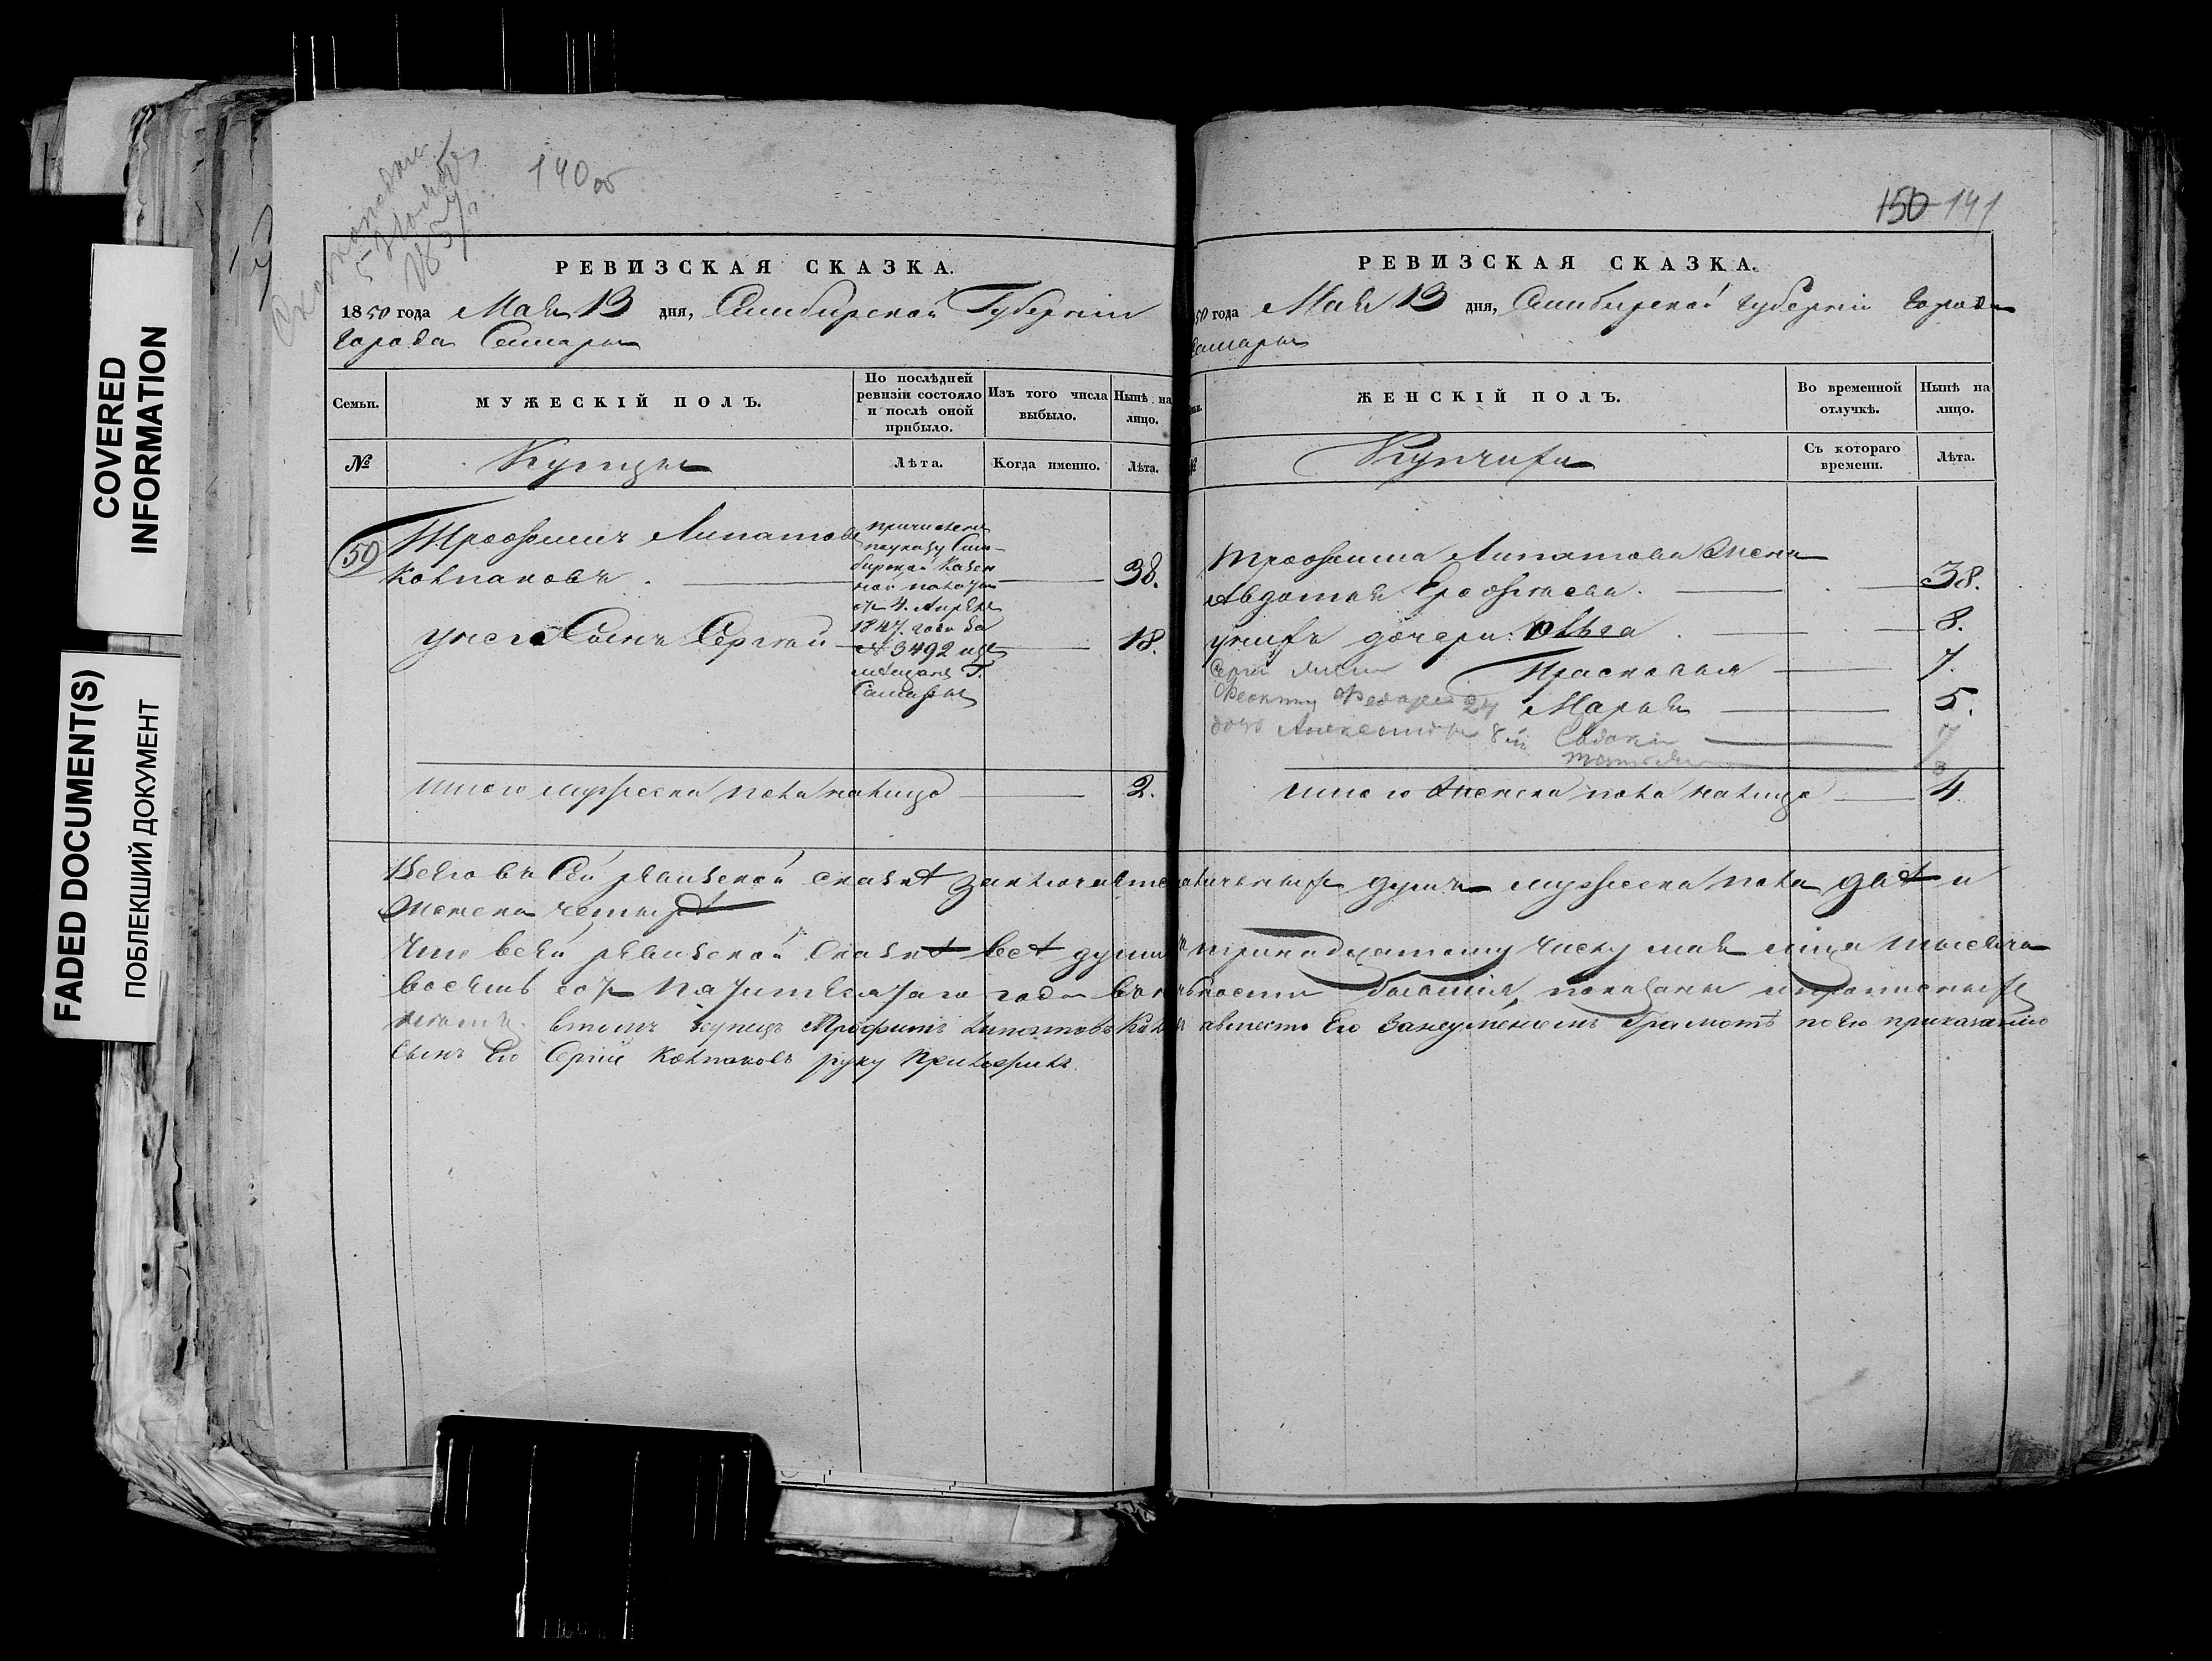 COVERED
INFORMATION
FADED DOCUMENT(S)
ПОБЛЕКШИЙ ДОКУМЕНТ
140 об
РЕВИЗСКАЯ СКАЗКА.
1850 года Мая 13 дня, Симбирской Губернии
города Самары
Семьи.
МУЖЕСКІЙ ПОЛЪ.
По послѣдней
ревизіи состояло
и послѣ оной
прибыло.
Изъ того числа
выбыло.
Нынѣ на
лицо.
№
Купцы
Лѣта.
Когда именно.
Лѣта.
50
Трофимъ Липатовъ
Колпаковъ. 38.
причисленъ
поуказу Сим-
бирской Казен
ной палаты
отъ 4. Апреля
1847. года за
№ 3492 изъ
мещанъ Г.
Самары
унего Сынъ Сергей 18.
итого мужеска пола налицо 2.
150 141
РЕВИЗСКАЯ СКАЗКА.
50 года Мая 13 дня, Симбирской губернии города
Самары
ЖЕНСКІЙ ПОЛЪ.
Во временной
отлучкѣ.
Нынѣ на
лицо.
Купчихи
Съ котораго
времени.
Лѣта.
Трофима Липатова Жена
Авдотья Ерофеева. 38.
унихъ дочери: Ольга 8.
Прасковья 7.
Марья 5.
Сергей
24
дочь 8
итого женска пола налицо 4.
Всего въ сей ревизской сказке заключается наличныхъ душъ мужеска пола две и
женска четыре
Что всей ревизской сказке все души тринадцатому числу мая мца тысяча
восемь сотъ Пятидесятаго года въ наличности бывшия, показаны инрописныхъ
нетъ. Втомъ купецъ Трофимъ Липатовъ Колпаковъ авместо Его Занеуменіемъ Грамотѣ поЕго приказанію
сынъ Его Сергей Колпаковъ руку приложилъ